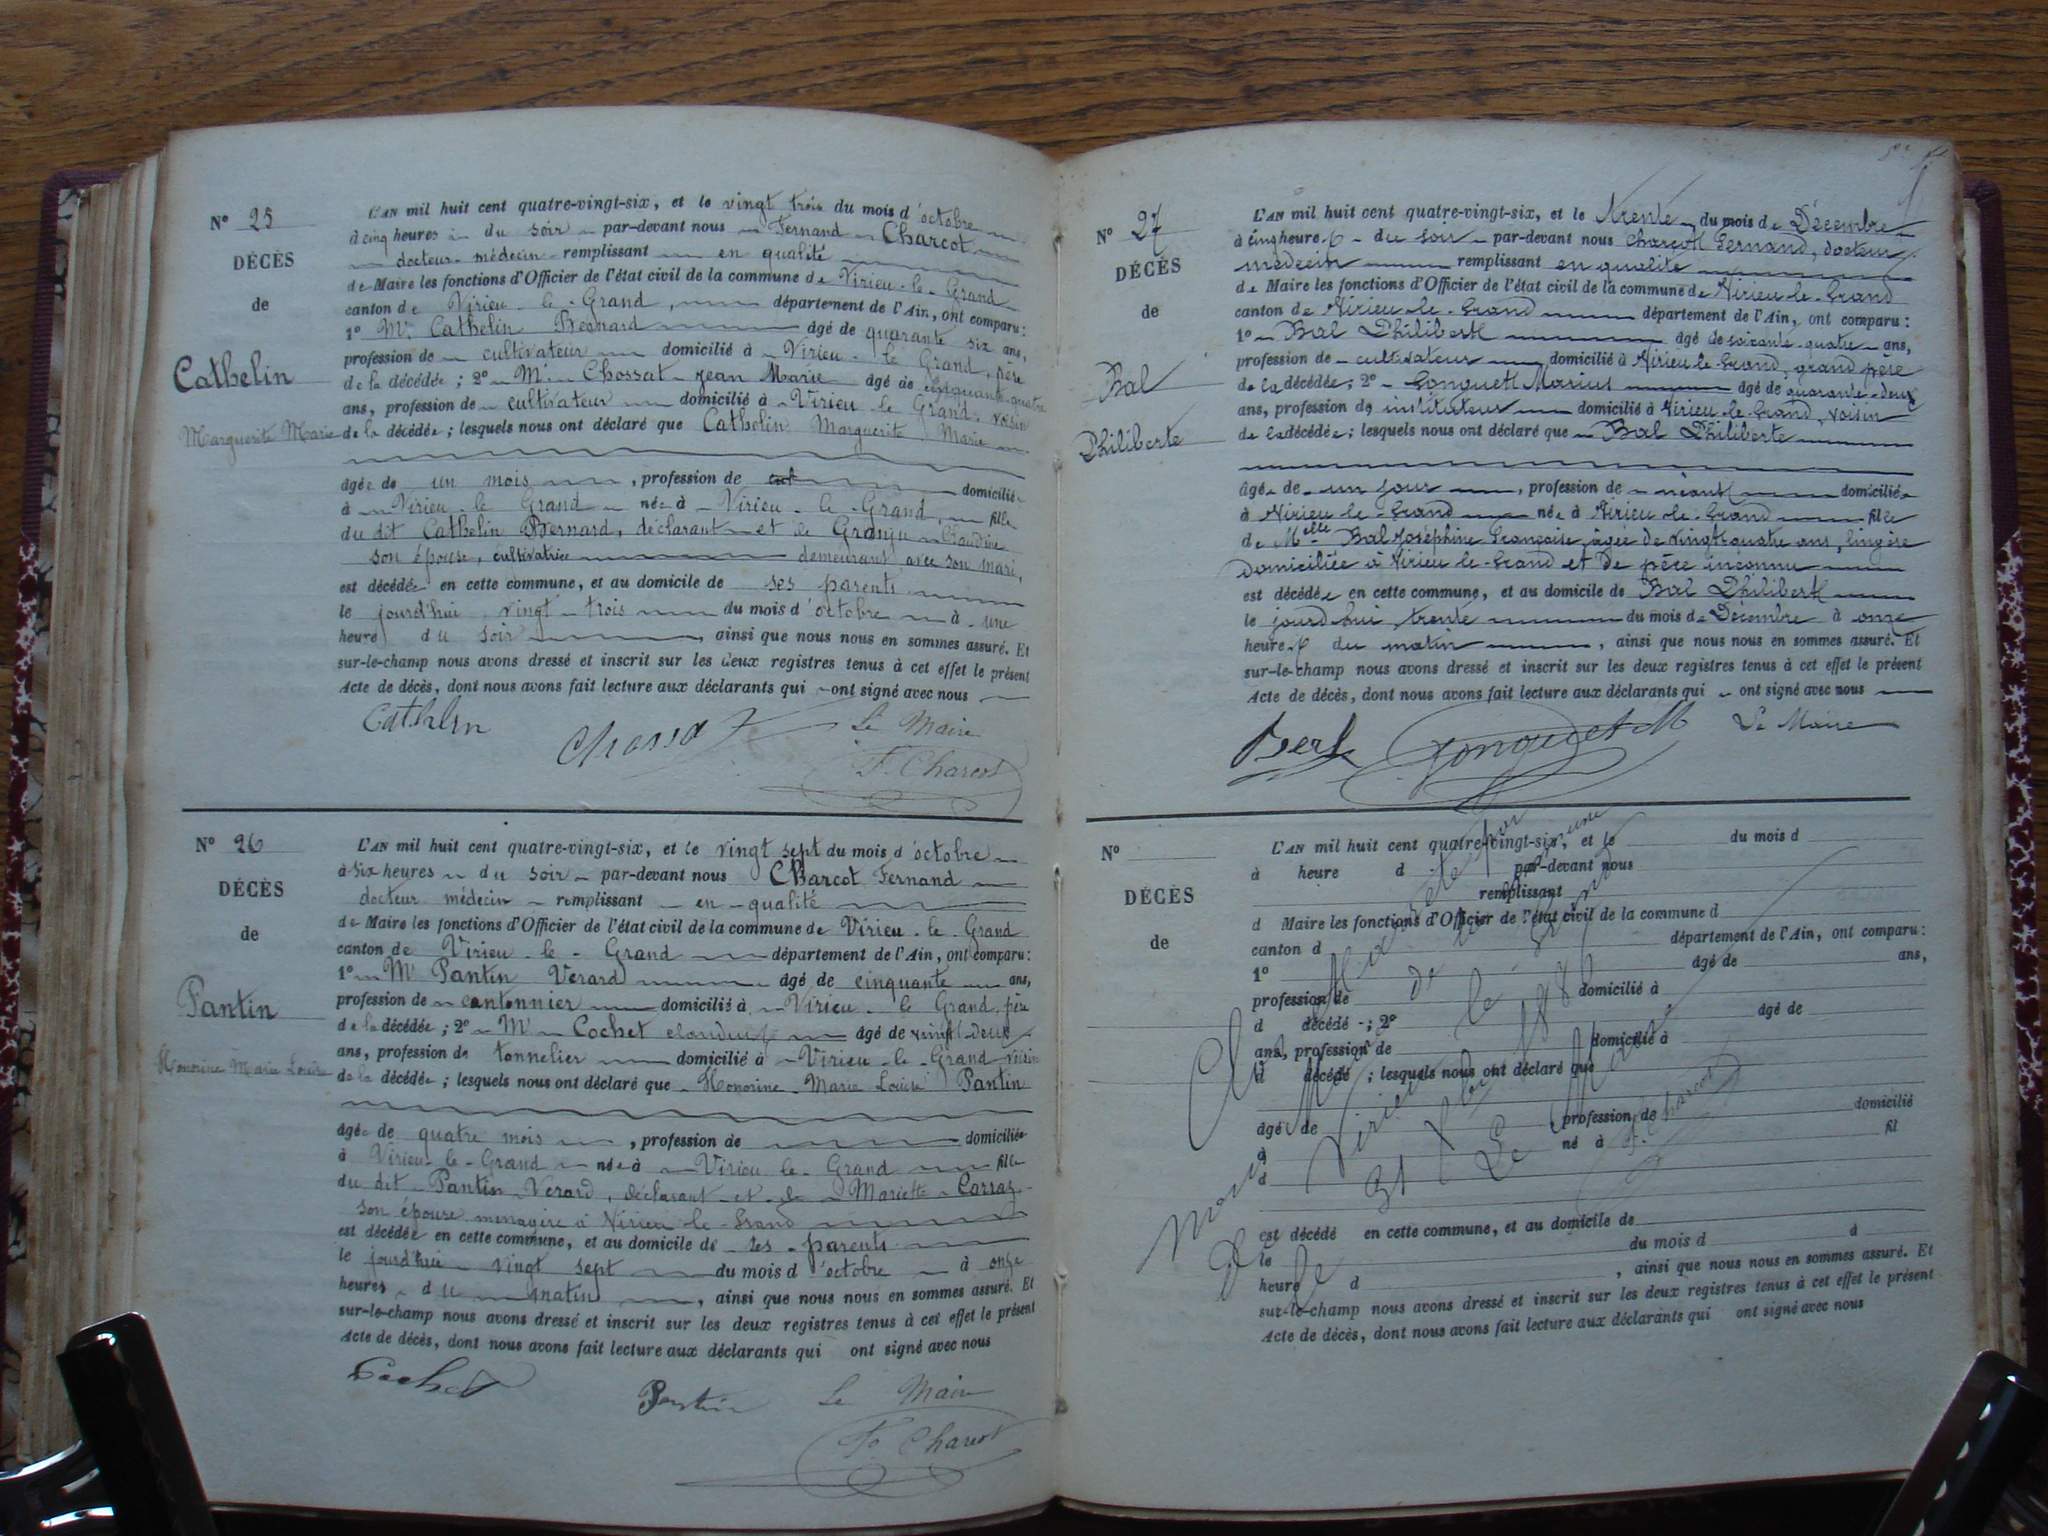 N° 25
DÉCÈS
de
Cathelin
Marguerite Marie
L'AN mil huit cent quatre-vingt-six, et le vingt trois du mois d'octobre
à cinq heures du soir par-devant nous Fernand Charcot
docteur-médecin remplissant en qualité
de Maire les fonctions d'Officier de l'état civil de la commune de Virieu-le-Grand
canton de Virieu-le-Grand, département de l'Ain, ont comparu:
1° Mr Cathelin Bernard âgé de quarante six ans,
profession de cultivateur domicilié à Virieu-le Grand, père
de la décédée; 2° Mr Chossat Jean Marie âgé de cinquante-quatre
ans, profession de cultivateur domicilié à Virieu-le Grand, voisin
de la décédée; lesquels nous ont déclaré que Cathelin Marguerite Marie
âgée de un mois, profession de domiciliée
à Virieu-le Grand née à Virieu-le-Grand, fille
du dit Cathelin Bernard, déclarant et de Granju Claudine
son épouse, cultivatrice demeurant avec son mari,
est décédée en cette commune, et au domicile de ses parents
le jourd'hui vingt-trois du mois d'octobre à une
heure du soir, ainsi que nous nous en sommes assuré. Et
sur-le-champ nous avons dressé et inscrit sur les deux registres tenus à cet effet le présent
Acte de décès, dont nous avons fait lecture aux déclarants qui ont signé avec nous
Cathelin Chossat Le Maire
F. Charcot
N° 26
DÉCÈS
de
Pantin
Honorine Marie Louise
L'AN mil huit cent quatre-vingt-six, et le vingt sept du mois d'octobre
à six heures du soir par-devant nous Charcot Fernand
docteur médecin remplissant en qualité
de Maire les fonctions d'Officier de l'état civil de la commune de Virieu-le-Grand
canton de Virieu-le-Grand département de l'Ain, ont comparu:
1° Mr Pantin Verard âgé de cinquante ans,
profession de cantonnier domicilié à Virieu-le Grand, père
de la décédée; 2° Mr Cochet âgé de vingt-deux
ans, profession de tonnelier domicilié à Virieu-le-Grand voisin
de la décédée; lesquels nous ont déclaré que Honorine Marie Louise Pantin
âgée de quatre mois, profession de domiciliée
à Virieu-le-Grand née à Virieu le-Grand fille
du dit Pantin Verard, déclarant et de Mariette Carraz
son épouse ménagère à Virieu-le-Grand
est décédée en cette commune, et au domicile de ses parents
le jourd'hui vingt sept du mois d'octobre à onze
heures du matin, ainsi que nous nous en sommes assuré. Et
sur-le-champ nous avons dressé et inscrit sur les deux registres tenus à cet effet le présent
Acte de décès, dont nous avons fait lecture aux déclarants qui ont signé avec nous
Cochet Pantin Le Maire
F. Charcot
N° 27
DÉCÈS
de
Bal
Philiberte
L'AN mil huit cent quatre-vingt-six, et le Trente du mois de Décembre
à cinq heures du soir par-devant nous Charcot Fernand, docteur
médecin remplissant en qualité
de Maire les fonctions d'Officier de l'état civil de la commune de Virieu-le-Grand
canton de Virieu-le-Grand département de l'Ain, ont comparu:
1° Bal Philibert âgé de soixante-quatre ans,
profession de cultivateur domicilié à Virieu-le-Grand, grand père
de la décédée; 2° Gonguet Marius âgé de quarante-deux
ans, profession de instituteur domicilié à Virieu-le-Grand, voisin
de la décédée; lesquels nous ont déclaré que Bal Philiberte
âgée de un jour, profession de néant domiciliée
à Virieu-le-Grand née à Virieu-le-Grand fille
de Melle Bal Joséphine Françoise, âgée de vingt-quatre ans, lingère
domiciliée à Virieu-le-Grand et de père inconnu
est décédée en cette commune, et au domicile de Bal Philibert
le jourd'hui trente du mois de Décembre à onze
heures du matin, ainsi que nous nous en sommes assuré. Et
sur-le-champ nous avons dressé et inscrit sur les deux registres tenus à cet effet le présent
Acte de décès, dont nous avons fait lecture aux déclarants qui ont signé avec nous
Gonguet M Le Maire
N°
DÉCÈS
de
L'AN mil huit cent quatre-vingt-six, et le du mois d
à heure d par-devant nous
remplissant
d Maire les fonctions d'Officier de l'état civil de la commune d
canton d département de l'Ain, ont comparu:
1° âgé de ans,
profession de domicilié à
d décédé ; 2° âgé de
ans, profession de domicilié à
d décédé ; lesquels nous ont déclaré que
âgé de profession de domicilié
à né à fil
d
est décédé en cette commune, et au domicile de
le du mois d à
heure d , ainsi que nous nous en sommes assuré. Et
sur-le-champ nous avons dressé et inscrit sur les deux registres tenus à cet effet le présent
Acte de décès, dont nous avons fait lecture aux déclarants qui ont signé avec nous
Clos et arrêté par
nous Maire de la commune
de Virieu le Grand
le 31 Xbre 1886
Le Maire
F. Charcot